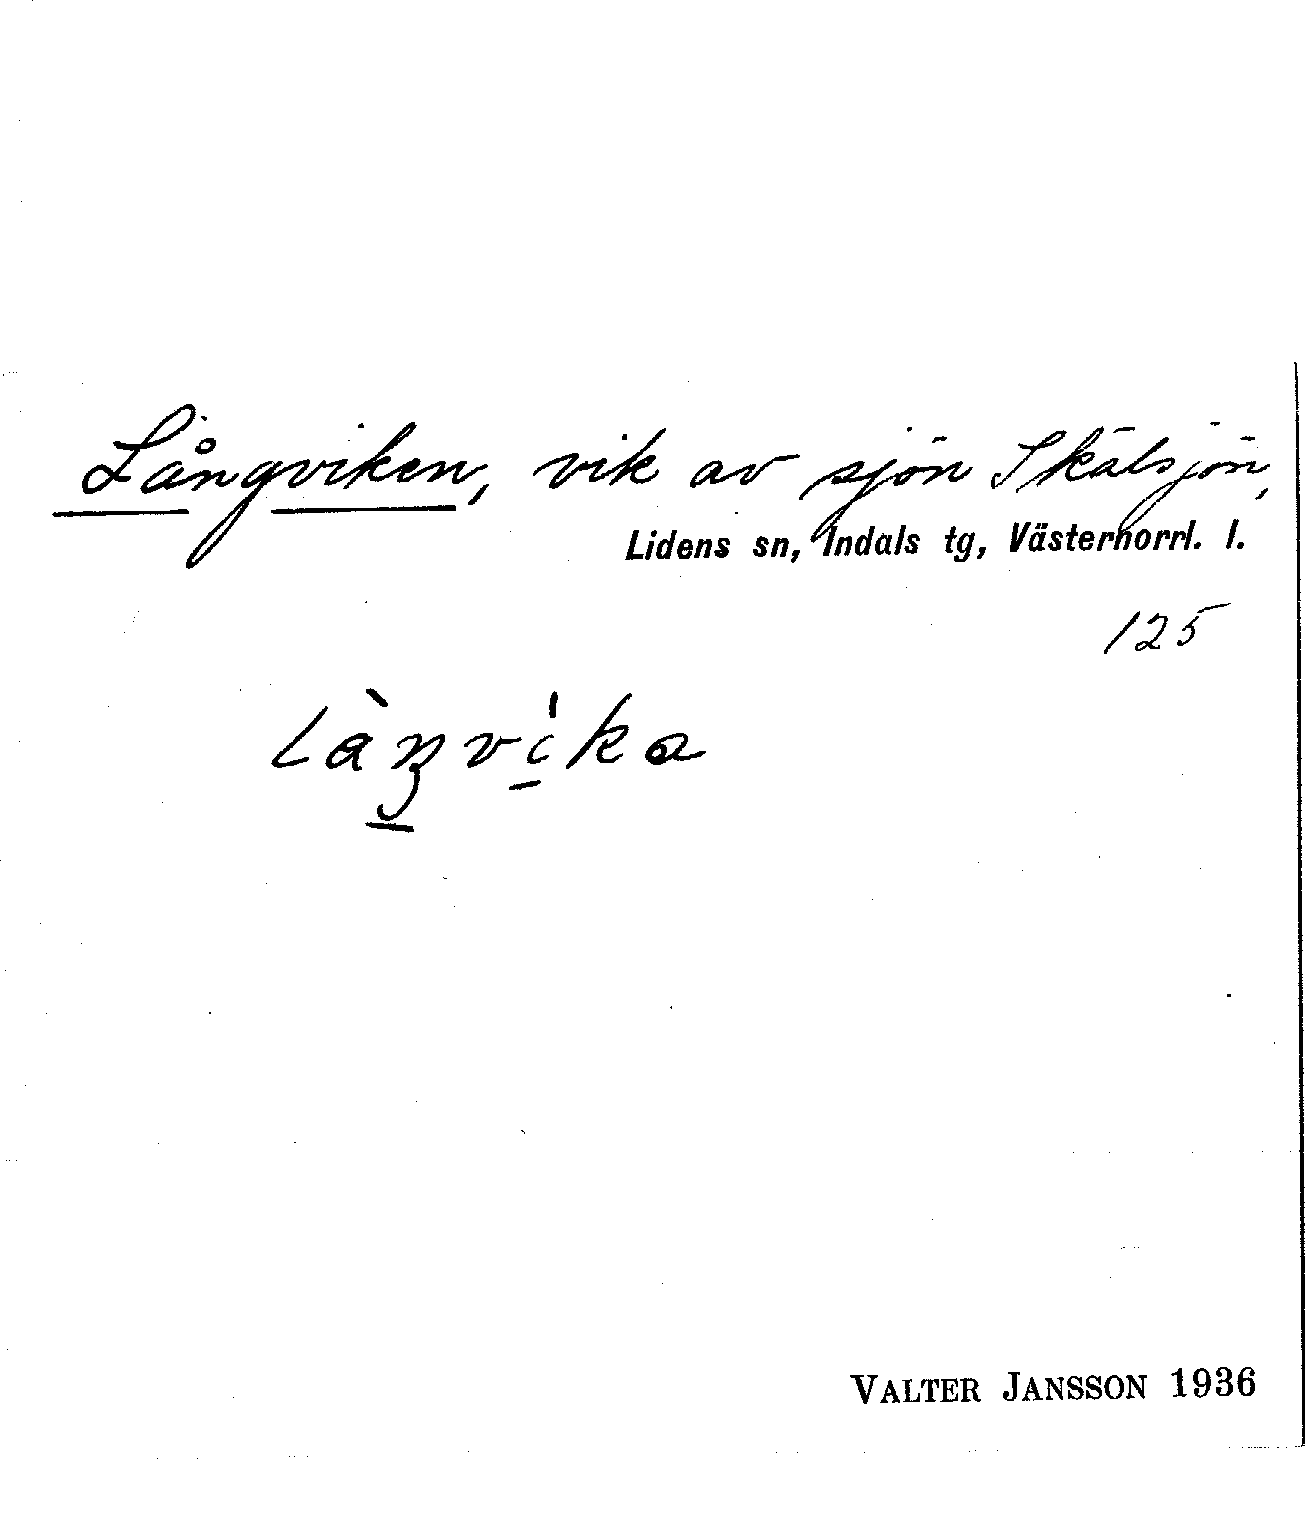 Långviken, vik av sjön Skälsjön,
Lidens sn, Indals tg, Västernorrl. l.
125
VALTER JANSSON 1936